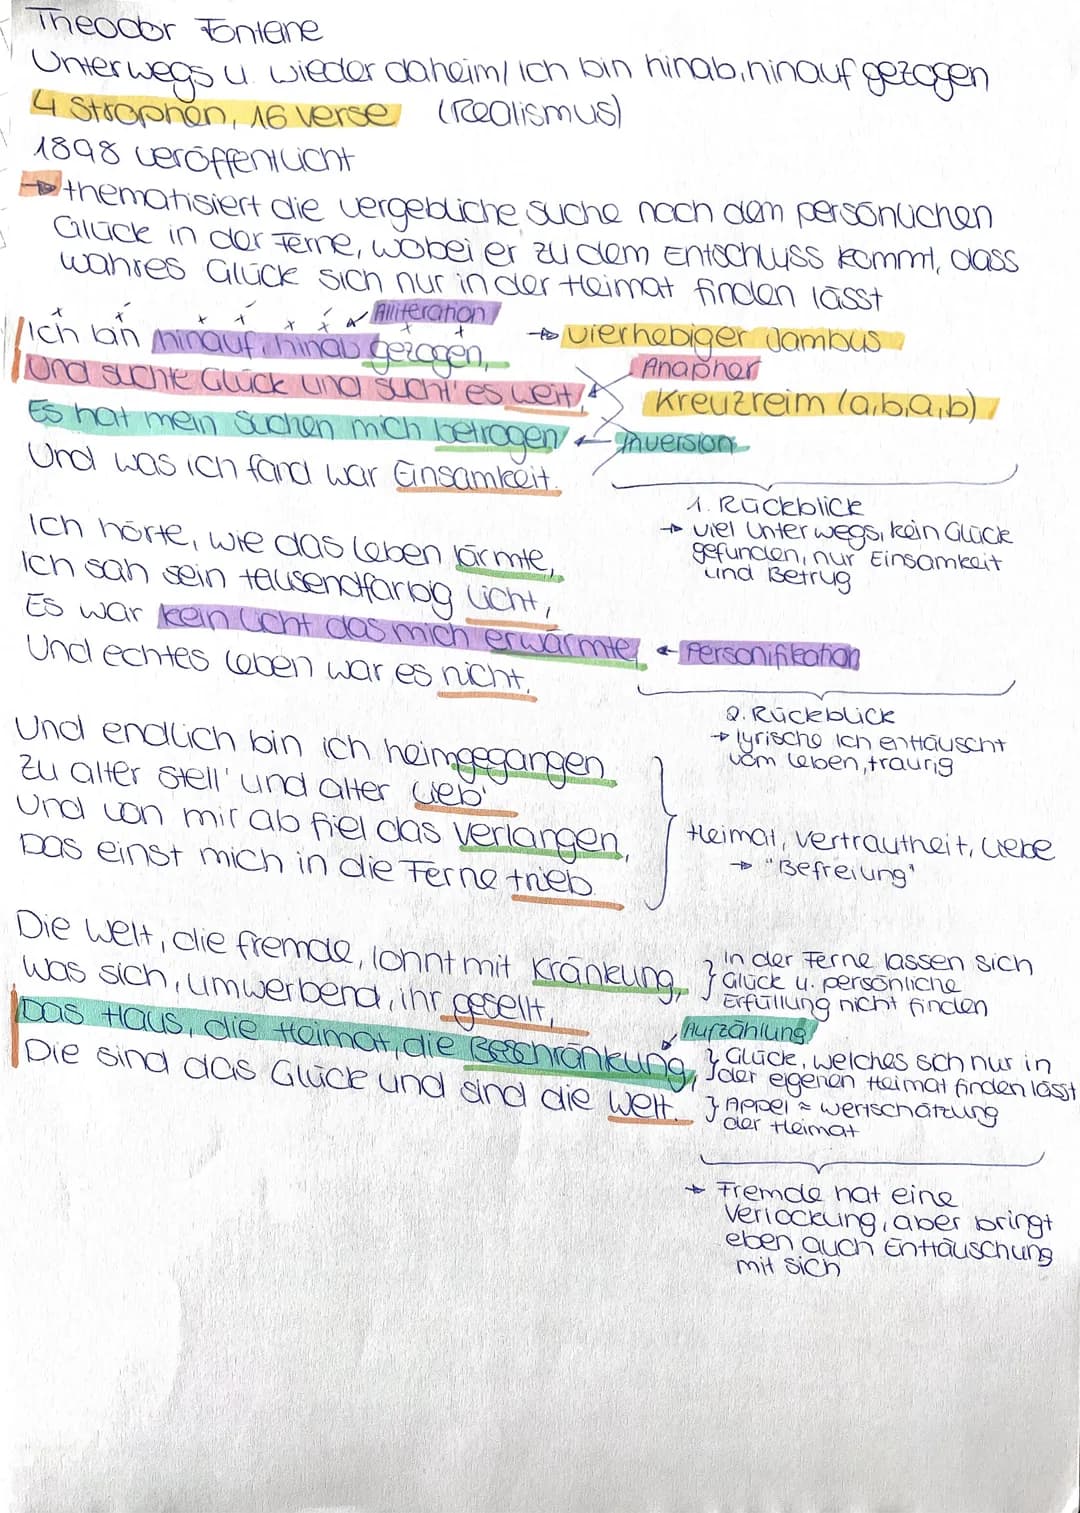 Theodor Fontane
Unterwegs u. wieder daheim/ Ich bin hinab, hinauf gezogen
4 Strophen, 16 Verse (Realismus)
1898 veröffentlicht
→ thematisiert die vergebliche suche nach dem persönlichen
Glück in der Ferne, wobei er zu dem Entschluss kommt, dass
wahres Glück sich nur in der Heimat finden lässt
Alliteration
Ich bin hinauf, hinab gezogen, → vierhebiger Jambus
Anapher
Und suchte Glück und sucht' es weit,
Kreuzreim (a,b,a,b)
Es hat mein Suchen mich betrogen ← Inversion
Und was ich fand war Einsamkeit.
1. Rückblick
→ viel Unterwegs, kein Glück
gefunden, nur Einsamkeit
und Betrug
Ich hörte, wie das Leben lärmte,
Ich sah sein tausendfarbig Licht,
Es war kein Licht das mich erwärmte, ← Personifikation
Und echtes Leben war es nicht.
2. Rückblick
→ lyrische Ich enttäuscht
vom Leben, traurig
Und endlich bin ich heimgegangen
Zu alter Stell' und alter Lieb'
Und von mir ab fiel das Verlangen,
Das einst mich in die Ferne trieb.
Heimat, Vertrautheit, Liebe
→ "Befreiung"
Die Welt, die fremde, lohnt mit Kränkung,
Was sich, umwerbend, ihr gesellt,
In der Ferne lassen sich
Glück u. persönliche
Erfüllung nicht finden
Aufzählung
Das Haus, die Heimat, die Beschränkung,
Die sind das Glück und sind die Welt.
Glück, welches sich nur in
der eigenen Heimat finden lässt
Appel ≈ Wertschätzung
der Heimat
→ Fremde hat eine
Verlockung, aber bringt
eben auch Enttäuschung
mit sich